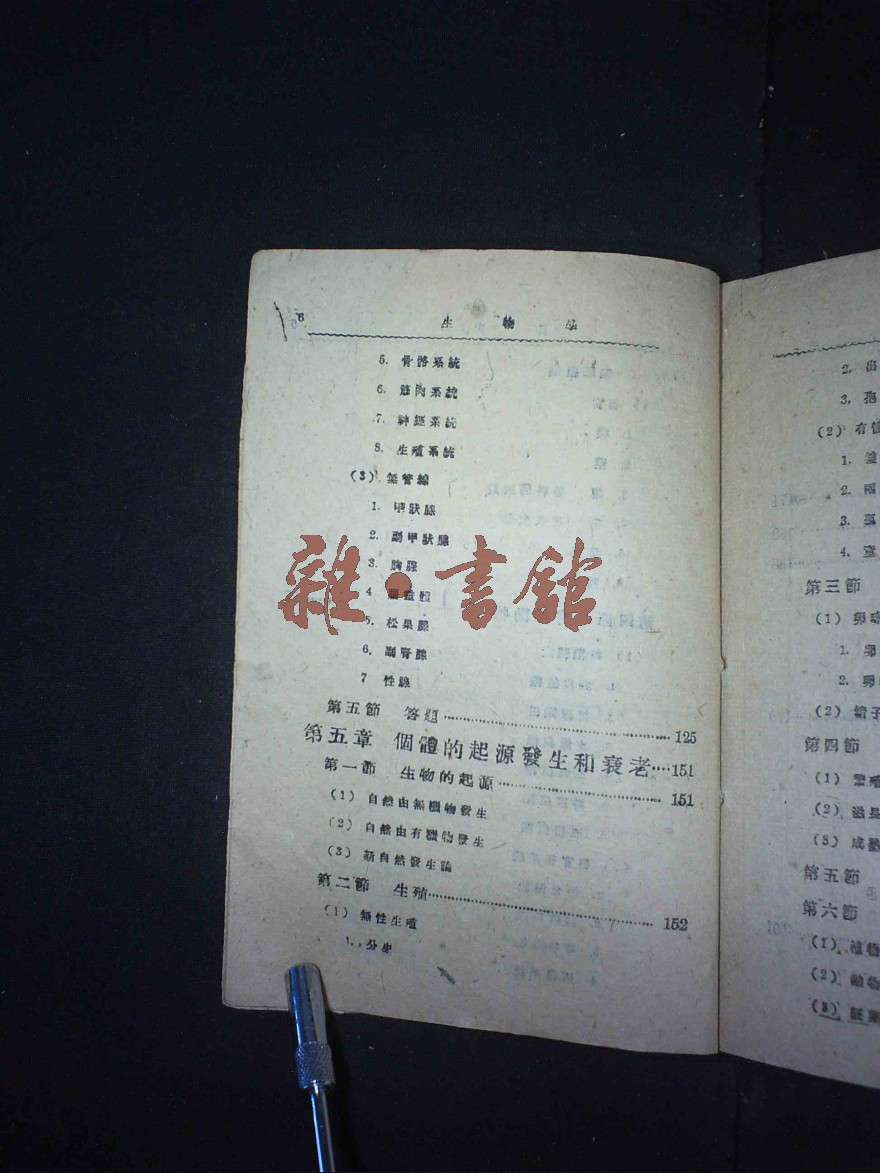 6 生物學
5. 骨骼系統
6. 筋肉系統
7. 神經系統
8. 生殖系統
(3) 無管線
1. 甲狀腺
2. 副甲狀腺
3. 胸腺
4
5. 松果腺
6. 副腎腺
7 性腺
第五節 答題 125
第五章 個體的起源發生和衰老 151
第一節 生物的起源 151
(1) 自然由無機物發生
(2) 自然由有機物發生
(3) 新自然發生論
第二節 生殖 152
(1) 無性生殖
1. 分生
雜·書館
2. 出
3. 孢
(2) 有性
1.
2. 兩
3.
4.
第三節
(1) 卵
1. 卵
2. 卵
(2) 精子
第四節
(1) 繁殖
(2) 滋長
(3) 成熟
第五節
第六節
(1) 植物
(2) 動物
(3)